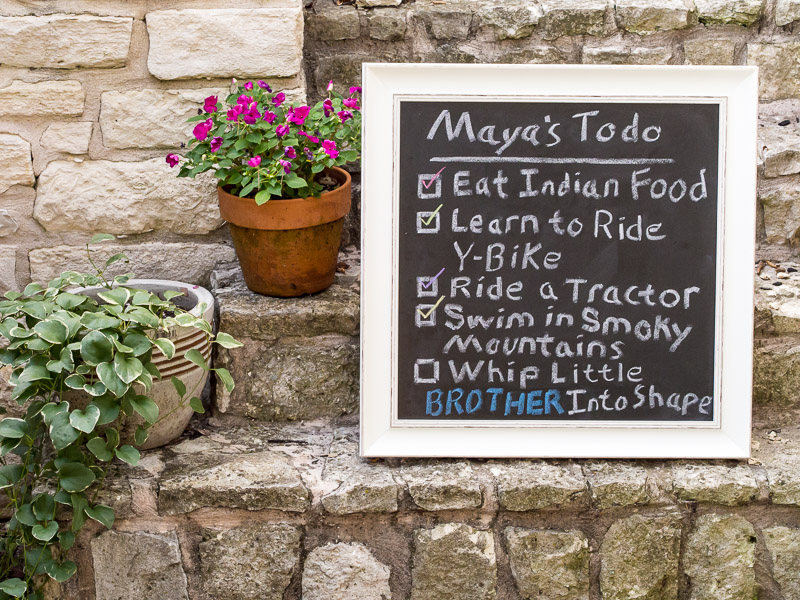 Maya's Todo
Eat Indian Food
Learn to Ride
Y-BiKe
Ride a Tractor
Swim in Smoky
Mountains
Whip Little
BROTHER Into Shape